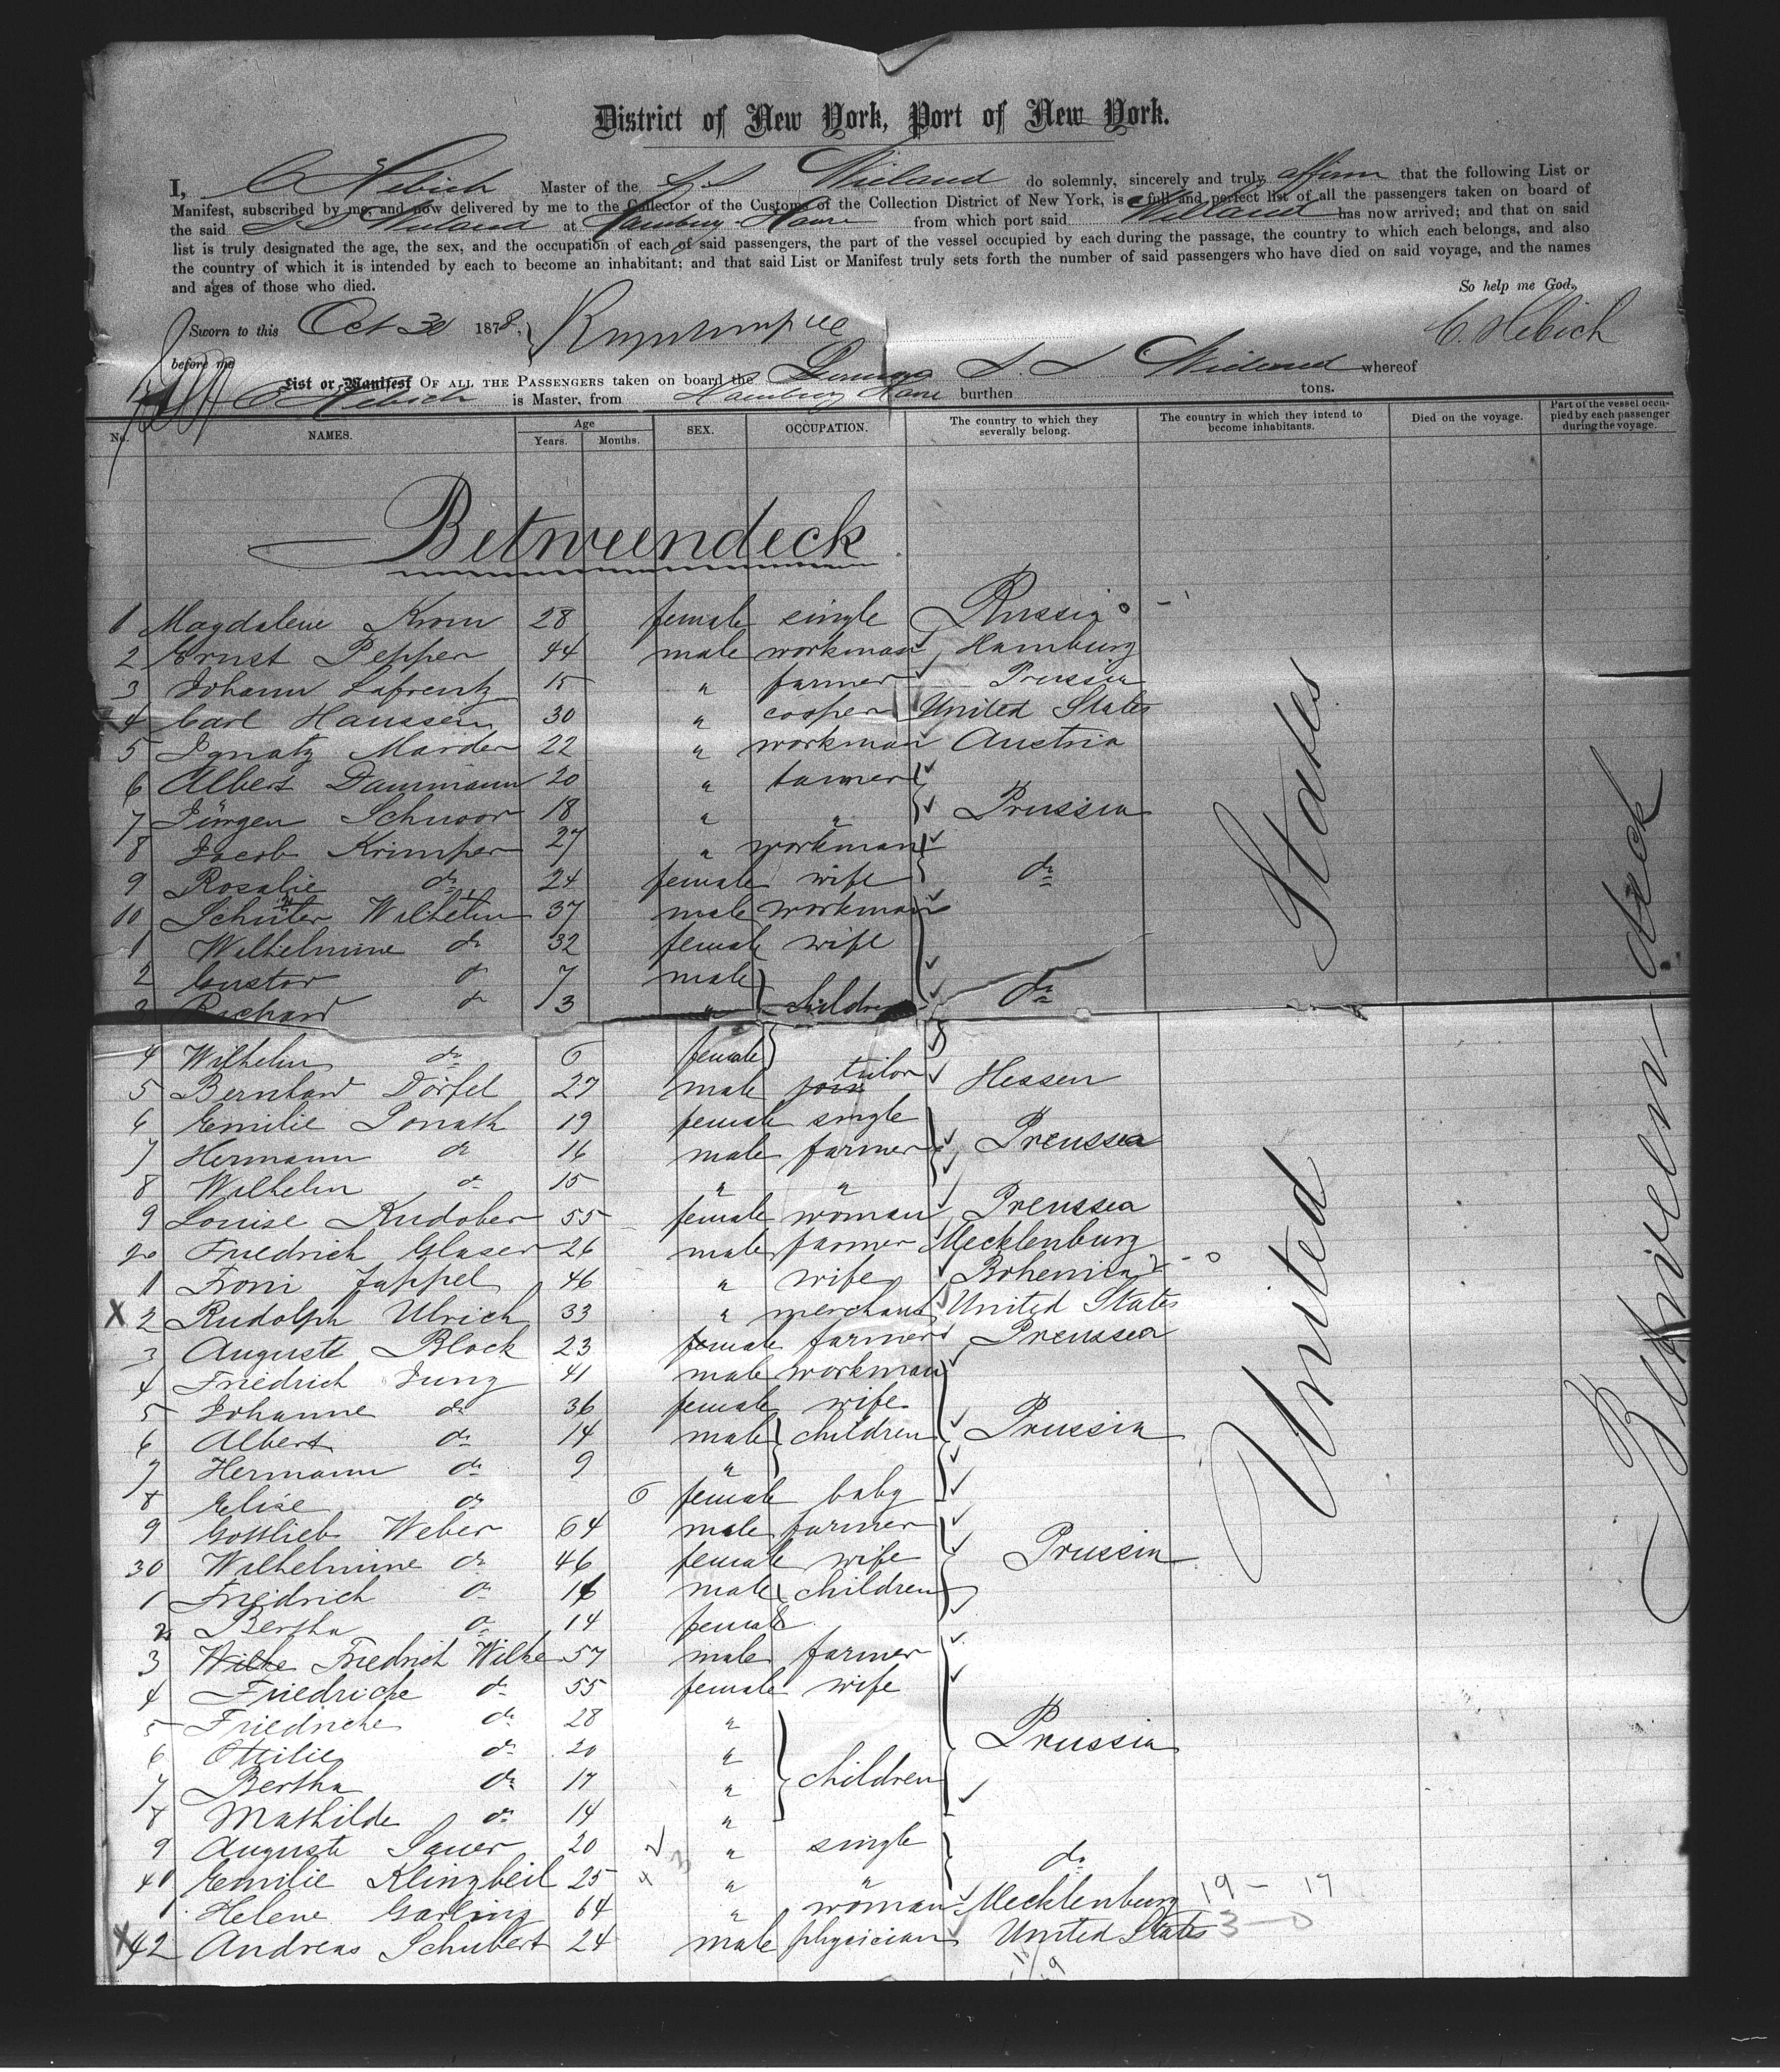 District of New York, Port of New York.
I, C Hebich Master of the S S Wieland do solemnly, sincerely and truly affirm that the following List or
Manifest, subscribed by me, and now delivered by me to the Collector of the Customs of the Collection District of New York, is a full and perfect list of all the passengers taken on board of
the said S S Wieland at Hamburg Havre from which port said Wieland has now arrived; and that on said
list is truly designated the age, the sex, and the occupation of each of said passengers, the part of the vessel occupied by each during the passage, the country to which each belongs, and also
the country of which it is intended by each to become an inhabitant; and that said List or Manifest truly sets forth the number of said passengers who have died on said voyage, and the names
and ages of those who died.
So help me God.
Sworn to this Oct 30 1878, C. Hebich
before me
List or Manifest OF ALL THE PASSENGERS taken on board the S. S Wieland whereof
C Hebich is Master, from Hamburg Havre burthen tons.
No. NAMES. Age Years. Months. SEX. OCCUPATION. The country to which they severally belong. The country in which they intend to become inhabitants. Died on the voyage. Part of the vessel occupied by each passenger during the voyage.
Betweendeck
1 Magdalene Krom 28 female single Russia
2 Ernst Pepper 44 male workman Hamburg
3 Johann Lafrentz 15 " farmer Prussia
4 Carl Hanssen 30 " cooper United States
5 Ignatz Marder 22 " workman Austria
6 Albert Dammann 20 " farmer
7 Jürgen Schnoor 18 " " Prussia
8 Jacob Krimper 27 " workman
9 Rosalie do 24 female wife do
10 Schuter Wilhelm 37 male workman
1 Wilhelmine do 32 female wife
2 Gustav do 7 male
3 Richard do 3 " children do
4 Wilhelm do 6 female
5 Bernhard Dörfel 27 male join tailor Hessen
6 Emilie Ponath 19 female single
7 Hermann do 16 male farmer Preussea
8 Wilhelm do 15 " "
9 Louise Kudober 55 female woman Preussea
20 Friedrich Glaser 26 male farmer Mecklenburg
1 Froni Zappel 46 " wife Bohemia
X 2 Rudolph Ulrich 33 " merchant United States
3 Auguste Block 23 female farmer Preussea
4 Friedrich Jung 41 male workman
5 Johanne do 36 female wife
6 Albert do 14 male children Prussia
7 Hermann do 9 "
8 Elise do 6 female baby
9 Gottlieb Weber 64 male farmer
30 Wilhelmine do 46 female wife Prussia
1 Friedrich do 16 male children
2 Bertha do 14 female
3 Wilke Friedrich Wilke 57 male farmer
4 Friedricke do 55 female wife
5 Friedricke do 28 "
6 Ottilie do 20 " Prussia
7 Bertha do 17 " children
8 Mathilde do 14 "
9 Auguste Sauer 20 " single
40 Emilie Klingbeil 25 " " do
1 Helene Garling 64 " woman Mecklenburg 19 - 19
X 42 Andreas Schubert 24 male physician United States 3 - 0
United States
Between deck